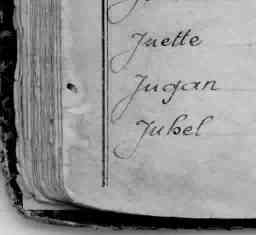 Juette
Jugan
Juhel